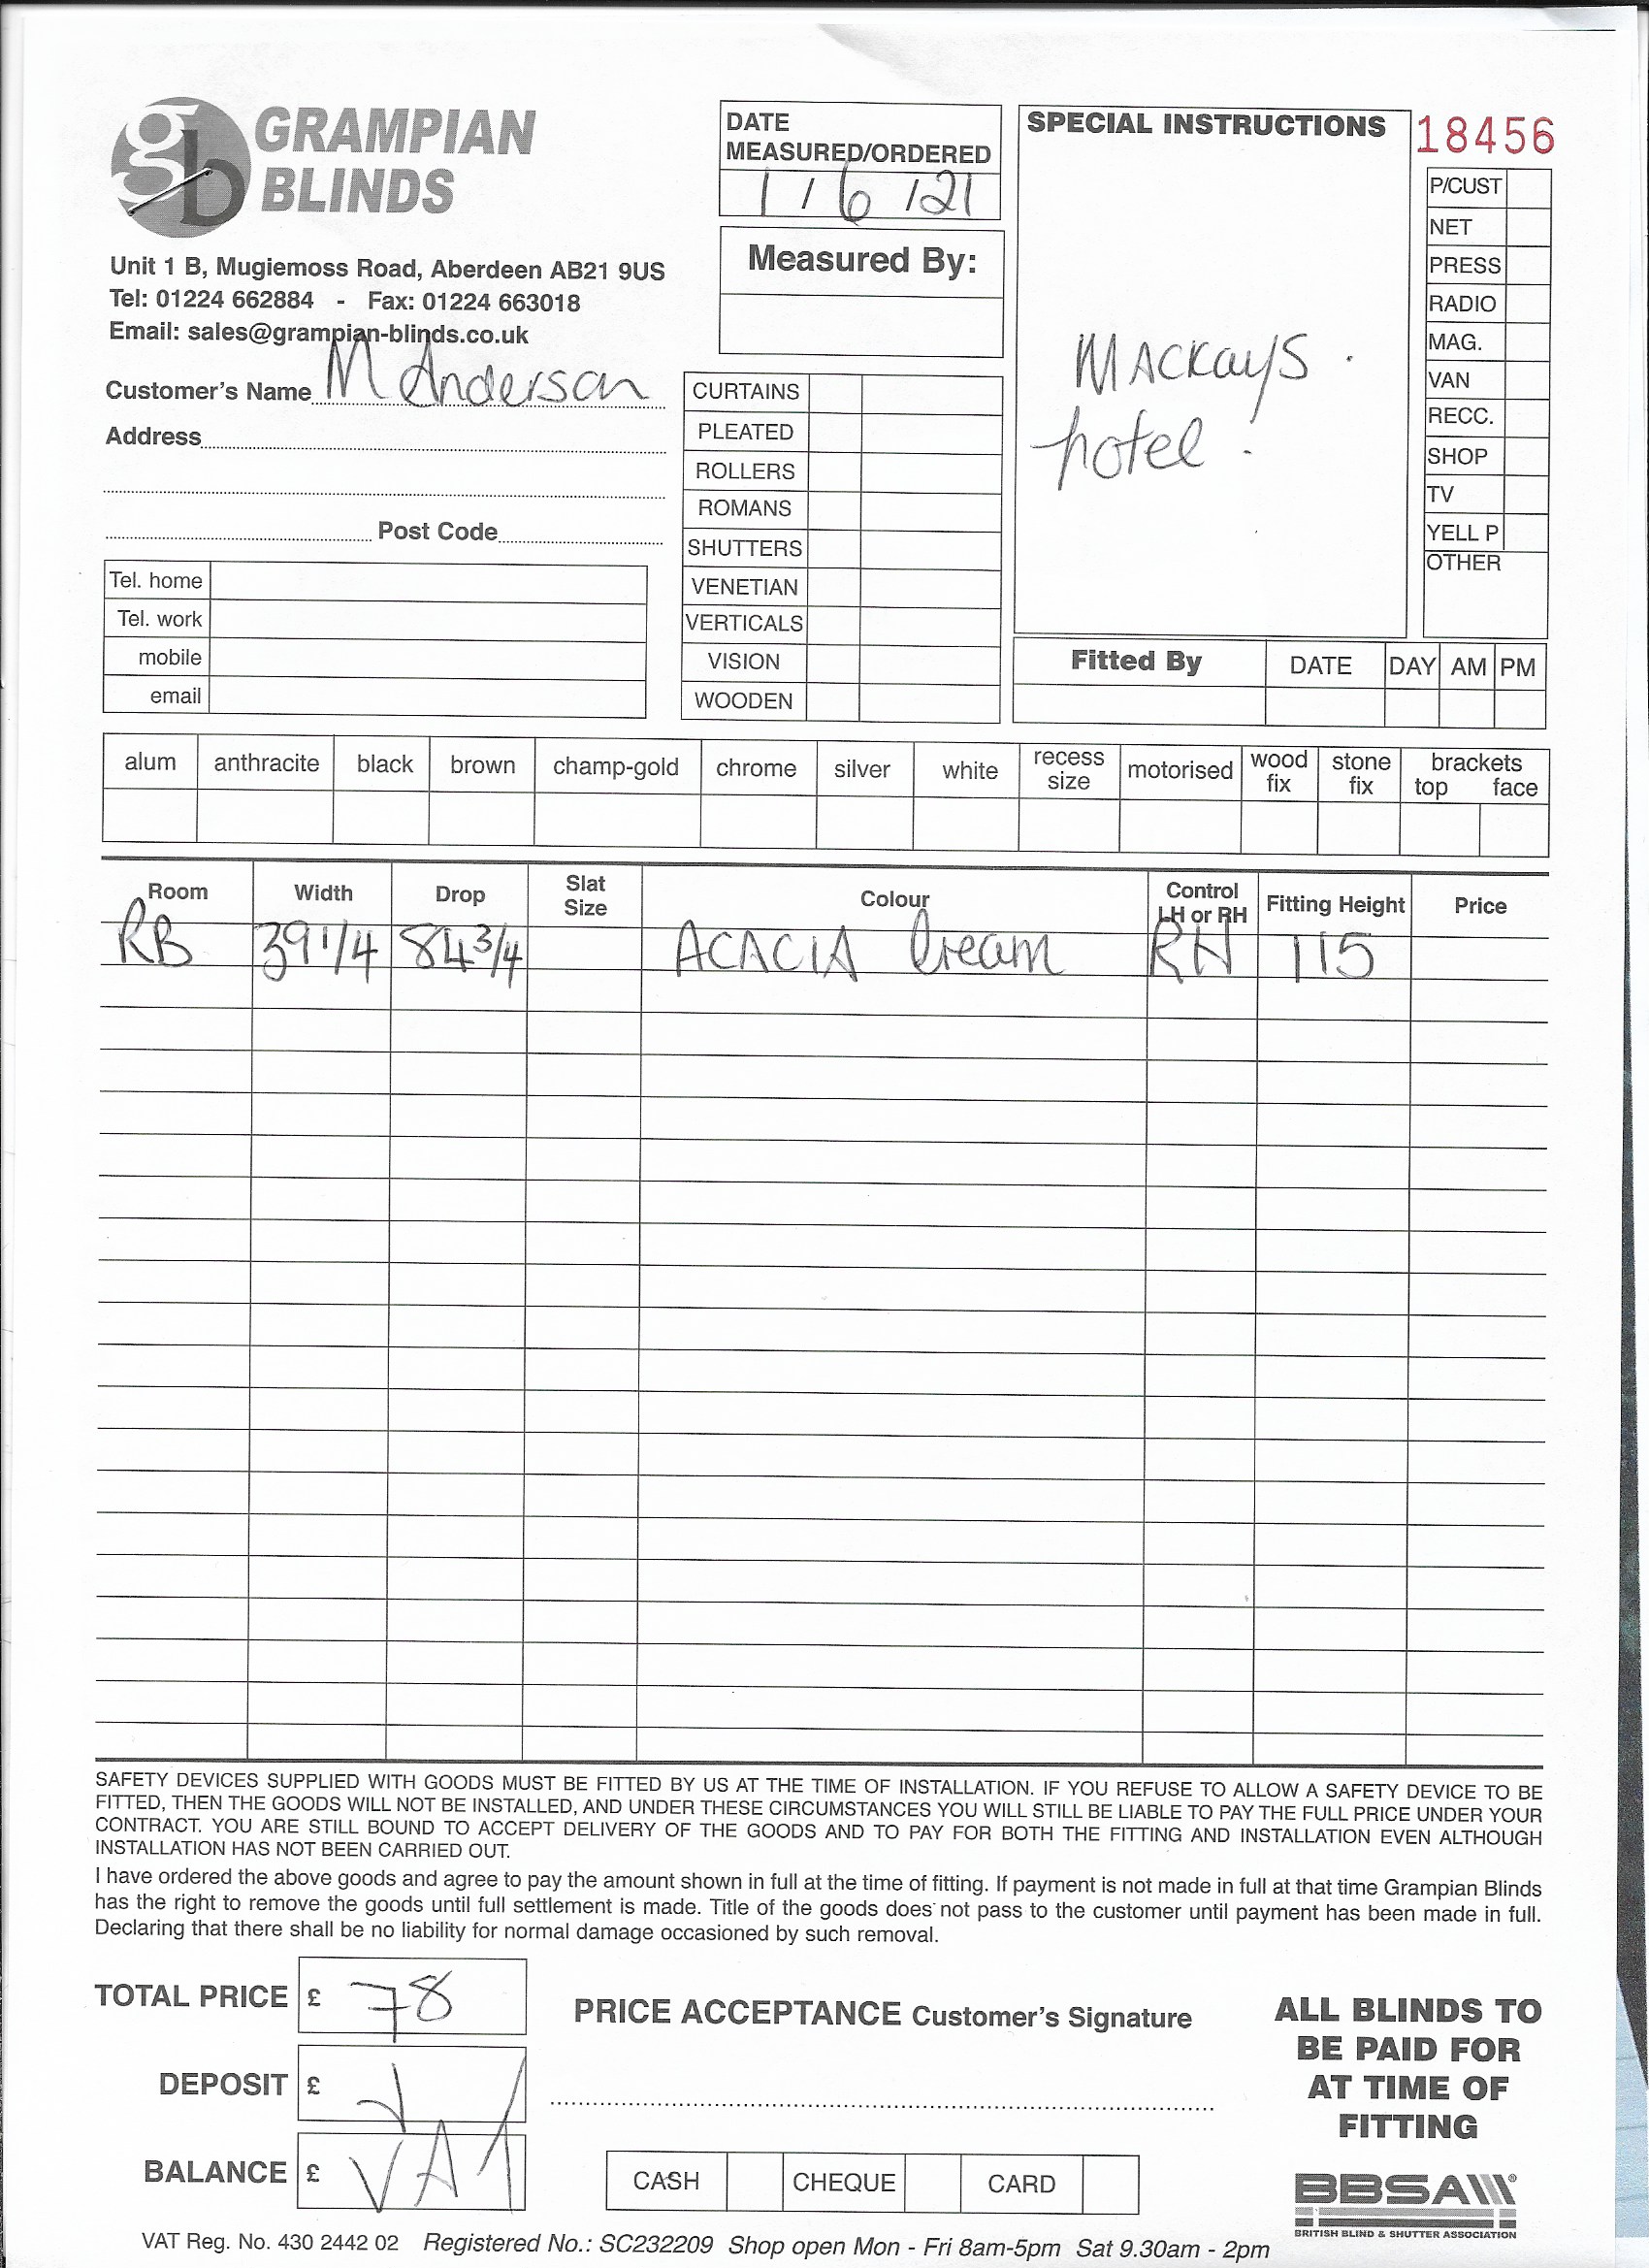 gb GRAMPIAN
BLINDS
Unit 1 B, Mugiemoss Road, Aberdeen AB21 9US
Tel: 01224 662884 - Fax: 01224 663018
Email: sales@grampian-blinds.co.uk
Customer's Name M Anderson
Address
Post Code
Tel. home
Tel. work
mobile
email
DATE
MEASURED/ORDERED
1/6/21
Measured By:
CURTAINS
PLEATED
ROLLERS
ROMANS
SHUTTERS
VENETIAN
VERTICALS
VISION
WOODEN
SPECIAL INSTRUCTIONS
MACKays
hotel
18456
P/CUST
NET
PRESS
RADIO
MAG.
VAN
RECC.
SHOP
TV
YELL P
OTHER
Fitted By DATE DAY AM PM
alum anthracite black brown champ-gold chrome silver white recess size motorised wood fix stone fix brackets top face
Room Width Drop Slat Size Colour Control LH or RH Fitting Height Price
RB 39 1/4 84 3/4 ACACIA Cream RH 115
SAFETY DEVICES SUPPLIED WITH GOODS MUST BE FITTED BY US AT THE TIME OF INSTALLATION. IF YOU REFUSE TO ALLOW A SAFETY DEVICE TO BE
FITTED, THEN THE GOODS WILL NOT BE INSTALLED, AND UNDER THESE CIRCUMSTANCES YOU WILL STILL BE LIABLE TO PAY THE FULL PRICE UNDER YOUR
CONTRACT. YOU ARE STILL BOUND TO ACCEPT DELIVERY OF THE GOODS AND TO PAY FOR BOTH THE FITTING AND INSTALLATION EVEN ALTHOUGH
INSTALLATION HAS NOT BEEN CARRIED OUT.
I have ordered the above goods and agree to pay the amount shown in full at the time of fitting. If payment is not made in full at that time Grampian Blinds
has the right to remove the goods until full settlement is made. Title of the goods does not pass to the customer until payment has been made in full.
Declaring that there shall be no liability for normal damage occasioned by such removal.
TOTAL PRICE £ 78
DEPOSIT £
BALANCE £ VAT
PRICE ACCEPTANCE Customer's Signature
CASH CHEQUE CARD
ALL BLINDS TO
BE PAID FOR
AT TIME OF
FITTING
BBSA
BRITISH BLIND & SHUTTER ASSOCIATION
VAT Reg. No. 430 2442 02 Registered No.: SC232209 Shop open Mon - Fri 8am-5pm Sat 9.30am - 2pm